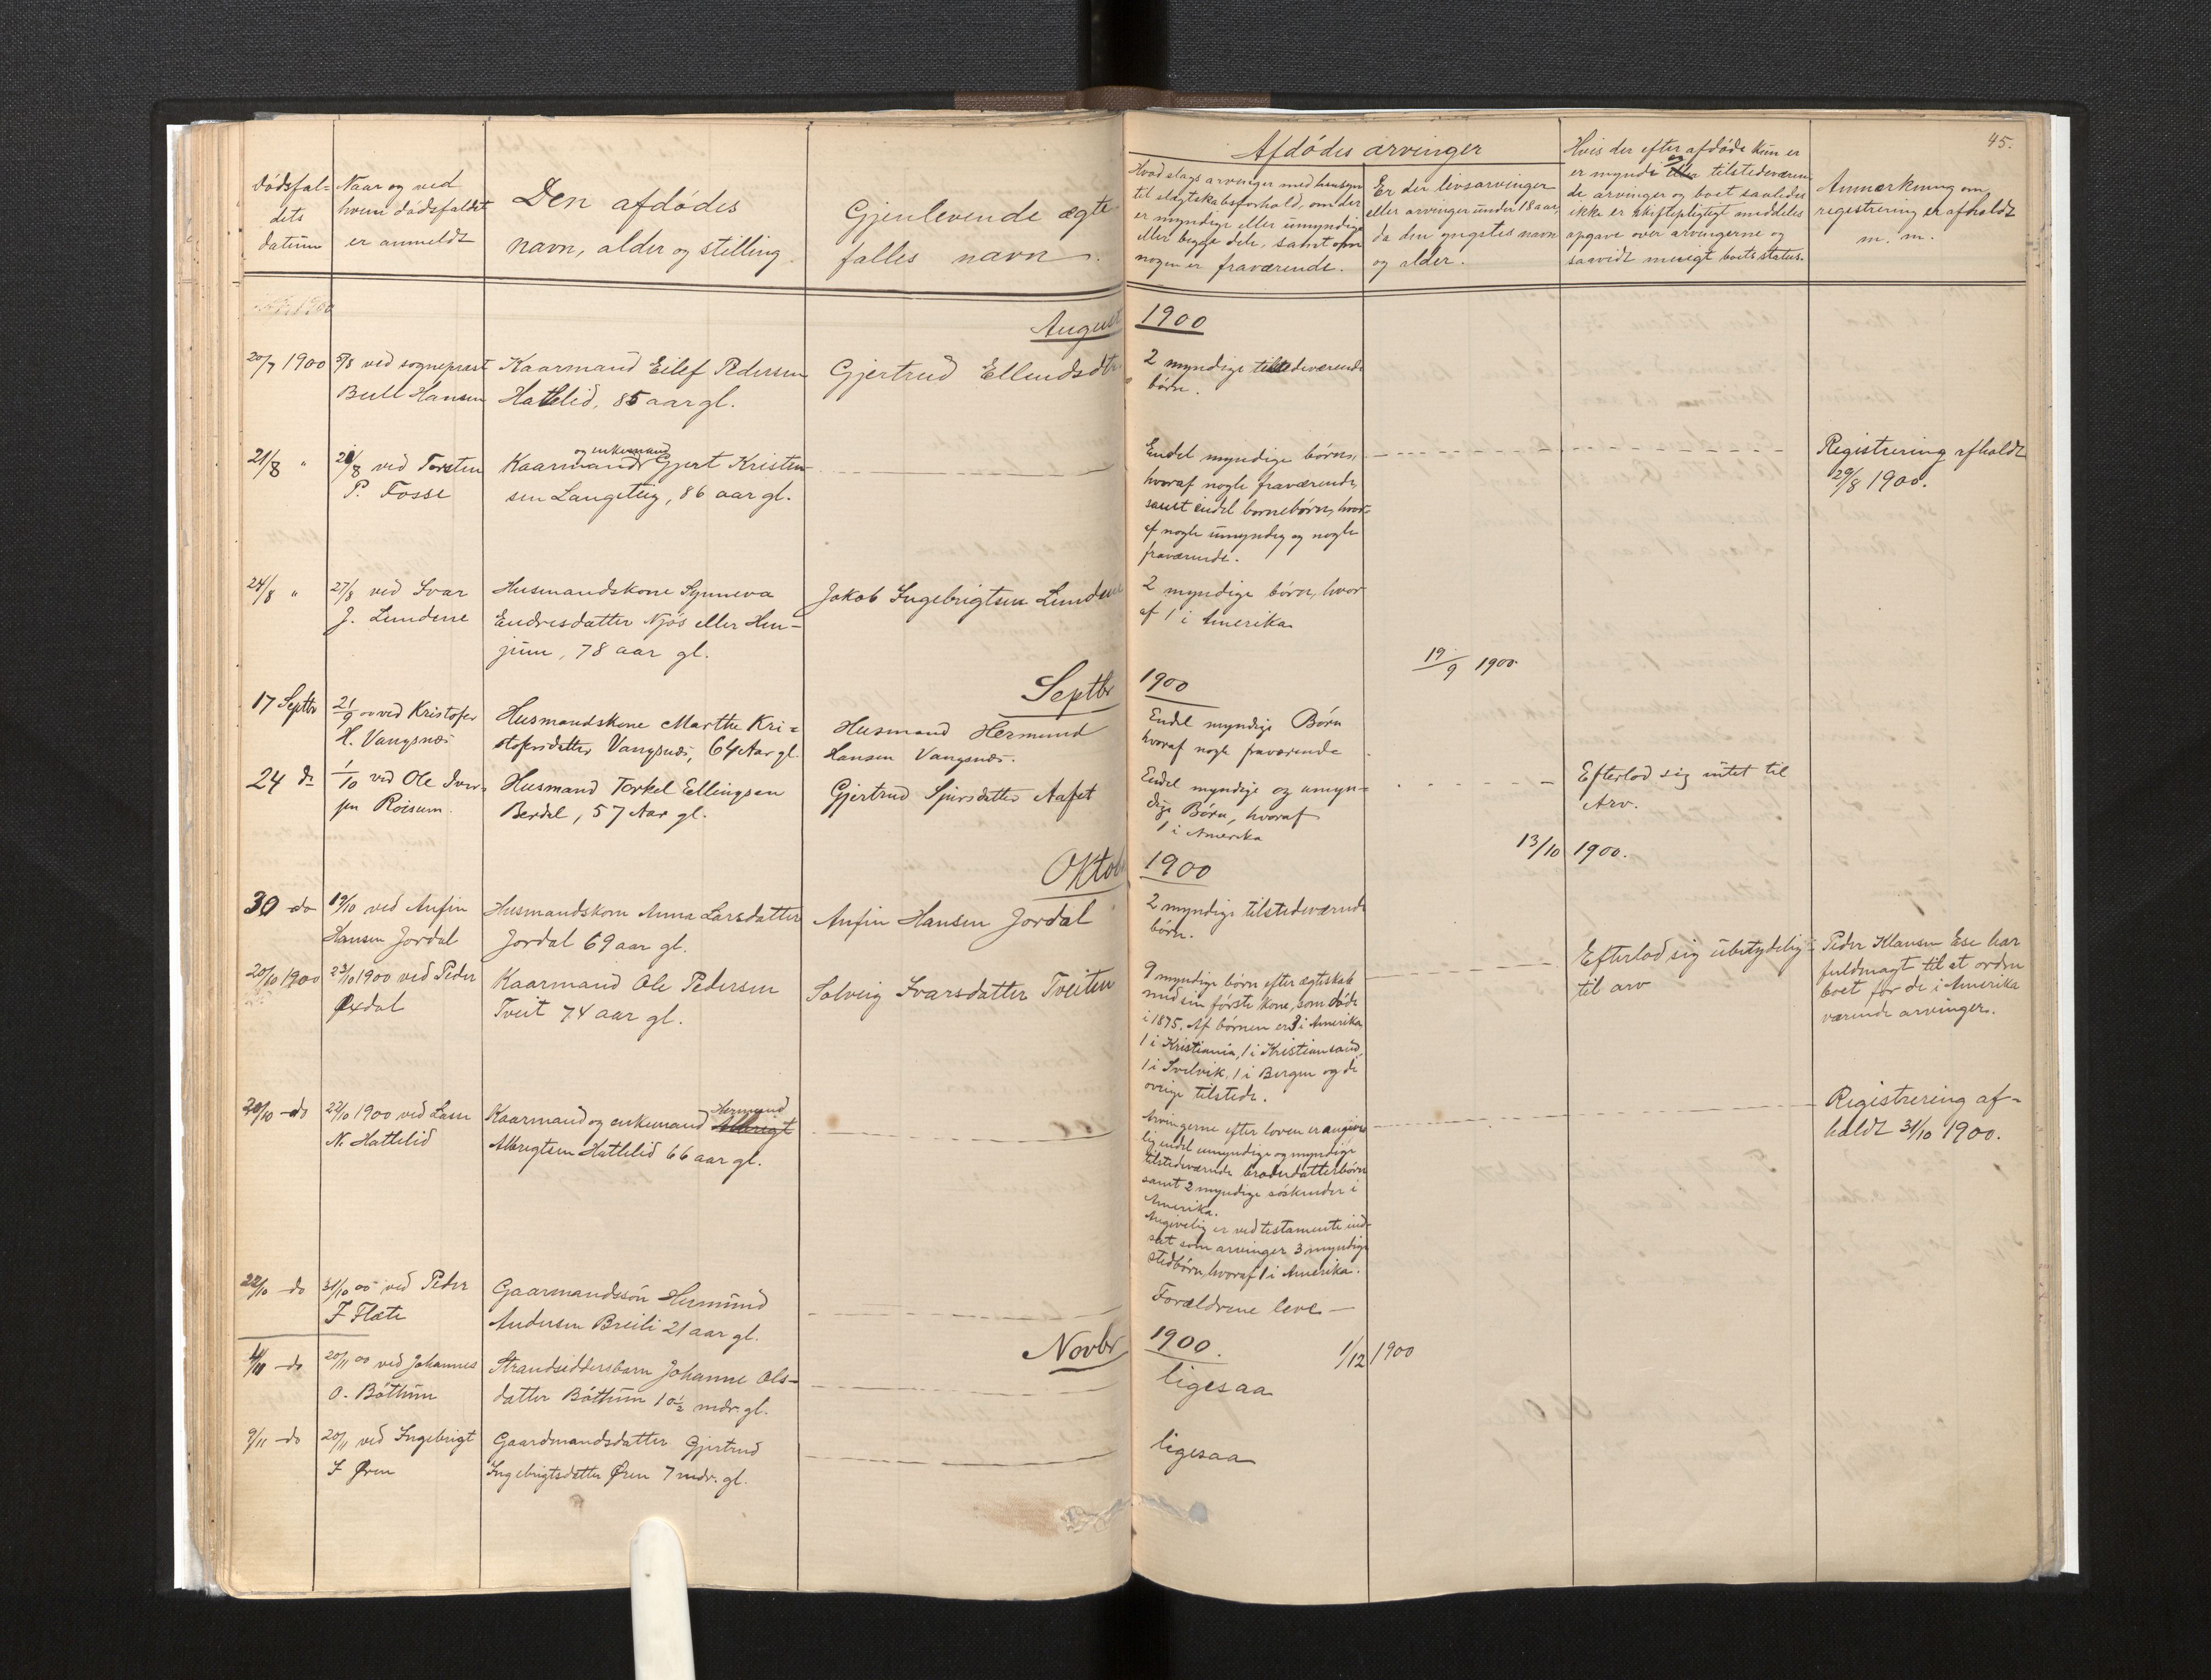 45.
Dödsfal-
dets
datum
Naar og ved
hvem dödsfaldet
er anmeldt
Den afdödes
navn, alder og stilling.
Gjenlevende ægte-
falles navn.
Afdödes arvinger
Hvad slags arvinger med hensyn
til slægtskabsforhold, om der
er myndige eller umyndige
eller begge dele, samt om
nogen er fraværende.
Er der livsarvinger
eller arvinger under 18 aar,
da den yngstes navn
og alder.
Hvis der efter afdöde kun er
er myndi og tilstedeværen
de arvinger og boet saaledes
ikke er skiftepligtigt meddeles
opgave over arvingerne og
saavidt muligt boets status.
Anmærkning om
registrering er afholdt
m. m.
August 1900
20/7 1900
5/8 ved sogneprest
Bull Hansen
Kaarmand Eilef Pedersen
Hatlelid, 85 aar gl.
Gjertrud Ellendsdtr
2 myndige tilstedeværende
börn.
21/8 "
28/8 ved Torsten
P. Fosse
og enkemand
Kaarmand Gjert Kristen-
sen Langeteig, 86 aar gl.
Endel myndige börn,
hvoraf nogle fraværende,
samt endel bornebörn, hvor-
af nogle umyndig og nogle
fraværende.
Registrering afholdt
29/8 1900.
24/8 "
27/8 ved Ivar
J. Lundene
Husmandskone Synneva
Endresdatter Njös eller Hen-
jum, 78 aar gl.
Jakob Ingebrigtsen Lundene
2 myndige börn, hvor
af 1 i Amerika
19/9 1900
Septbr 1900
17 Septbr
21/9 ved Kristofer
H. Vangsnæs
Husmandskone Marthe Kri-
stofersdatter Vangsnæs, 64 Aar gl.
Husmand Hermund
Hansen Vangsnæs.
Endel myndige Börn
hvoraf nogle fraværende
24 do
1/10 ved Ole Iver-
sen Röisum.
Husmand Torkel Ellingsen
Berdal, 57 Aar gl.
Gjertrud Sjursdatter Aafet
Endel myndige og umyn-
dige Börn, hvoraf
1 i Amerika
Efterlod sig intet til
Arv.
13/10 1900.
Oktob 1900
30 do
19/10 ved Anfin
Hansen Jordal
Husmandskone Anna Larsdatter
Jordal 69 aar gl.
Anfin Hansen Jordal
2 myndige tilstedeværende
börn.
20/10 1900
23/10 1900 ved Peder
Öxdal
Kaarmand Ole Pedersen
Tveit 74 aar gl.
Solveig Ivarsdatter Tveiten
9 myndige börn efter ægteskab
med sin förste kone, som döde
i 1875. Af börnen er 3 i Amerika,
1 i Kristiania, 1 i Kristiansand,
1 i Svelvik, 1 i Bergen og de
övrige tilstede.
Efterlod sig ubetydelig
til arv
Peder Klausen Ese har
fuldmagt til at ordne
boet for de i Amerika
værende arvinger.
20/10 do
22/10 1900 ved Lasse
N. Hatlelid
Hermund
Kaarmand og enkemand Albrigt
Albrigtsen Hatlelid 66 aar gl.
Arvingerne efter loven er angive-
lig endel umyndige og myndige
tilstedeværende broderdatterbörn
samt 2 myndige söskender i
Amerika.
Angivelig er ved testamente ind-
sat som arvinger 3 myndige
stedbörn, hvoraf 1 i Amerika.
Registrering af-
holdt 31/10 1900.
22/10 do
31/10 00 ved Peder
J Flæte
Gaarmandssön Hermund
Andersen Breili 21 aar gl.
Forældrene leve
Novbr 1900.
1/12 1900
4/11 do
20/11 00 ved Johannes
O. Böthun
Strandsiddersbarn Johanne Ols-
datter Böthun 10 1/2 mdr. gl.
ligesaa
9/11 do
20/11 ved Ingebrigt
I Ören
Gaardmandsdatter Gjertrud
Ingebrigtsdatter Ören 7 mdr. gl.
ligesaa